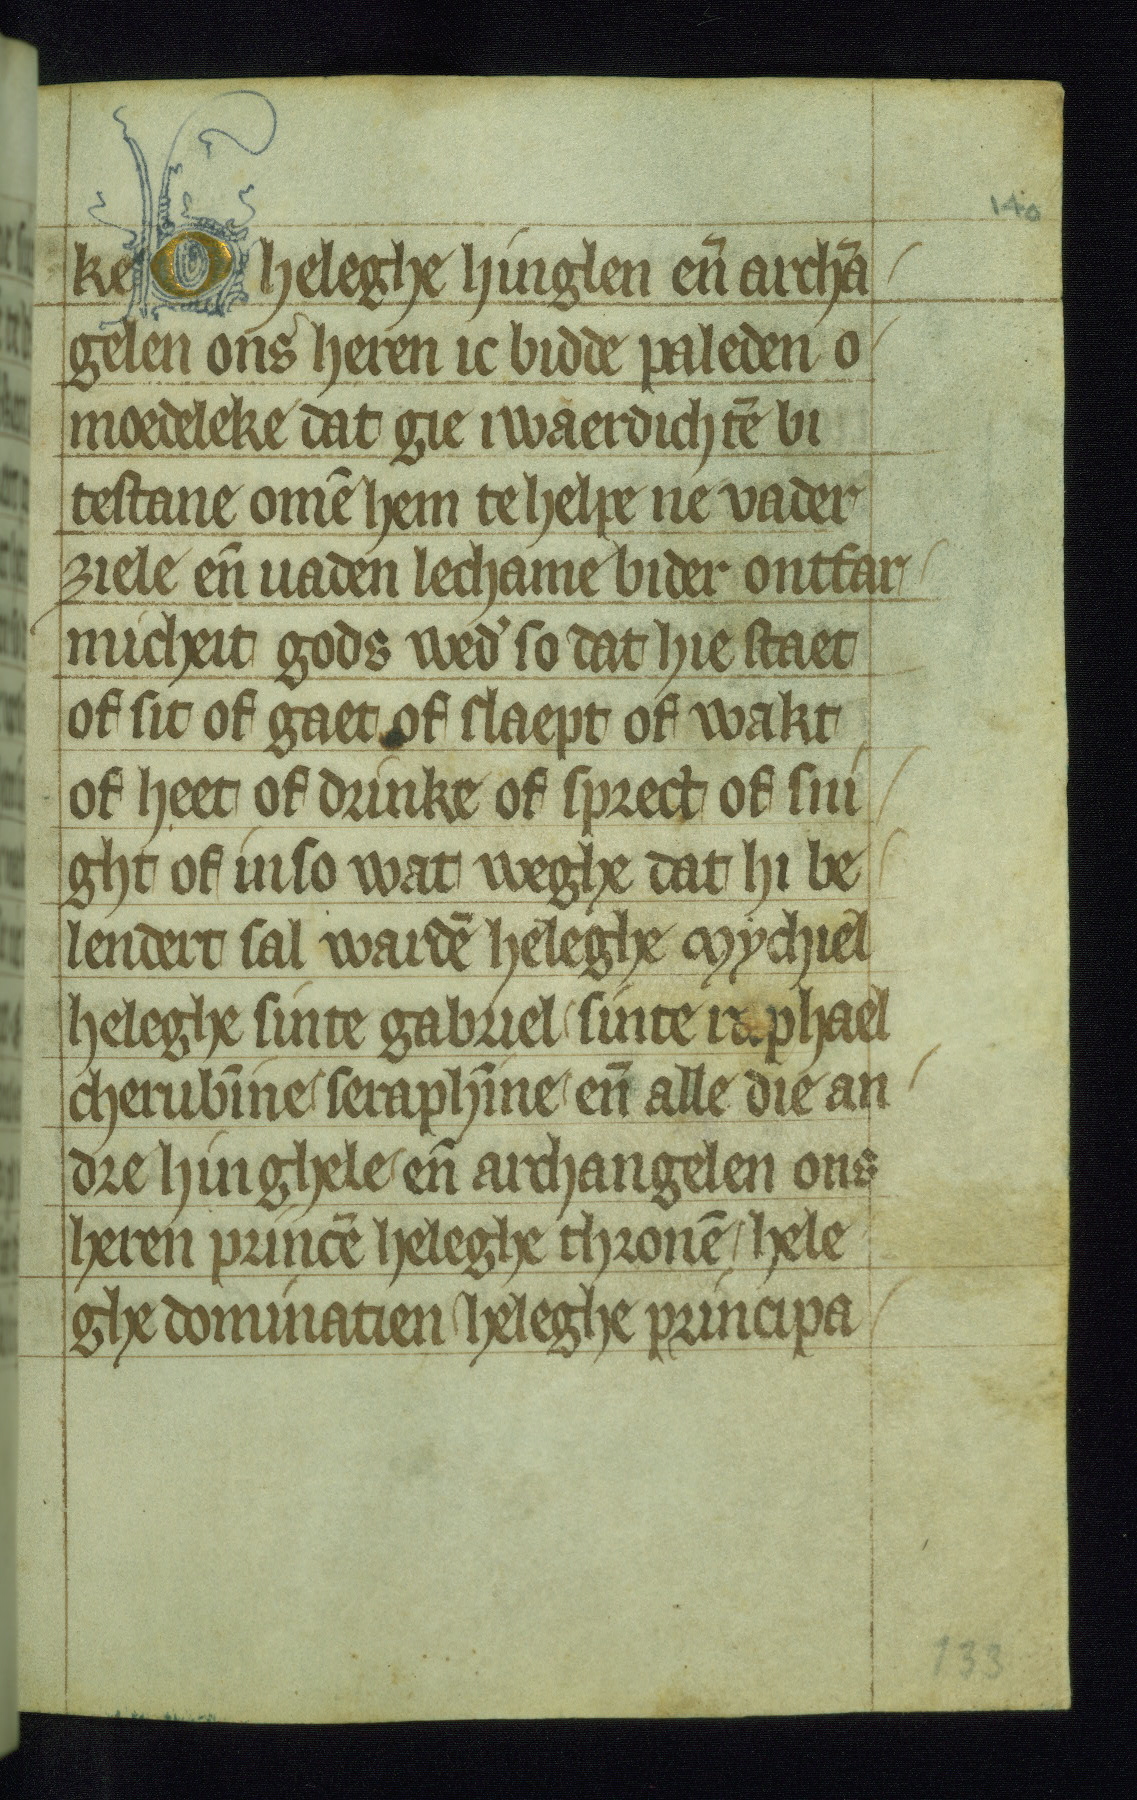 140
ke O heleghe hinglen en̄ archā
gelen onsˀ heren ic bidde paleden o
moedeleke dat gie iwaerdichtē bi
testane omē hem te helpe ne vader
ziele en̄ uaden lechame bider ontfar
micheit gods wedˀ so dat hie staet
of sit of gaet of slaept of wakt
of heet of drinke of sprect of sui
ght of inso wat weghe dat hi be
lendert sal wardē heleghe Mychiel
heleghe sinte gabriel sinte raphael
cherubīne seraphīne en̄ alle die an
dre hinghele en̄ archangelen ons
heren princē heleghe thronē hele
ghe dominatien heleghe principa
133